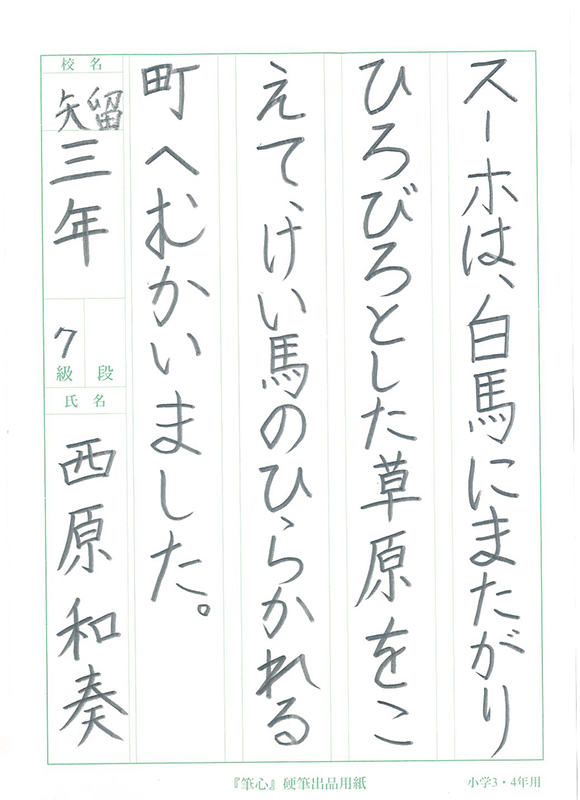 スーホは、白馬にまたがり
ひろびろとした草原をこ
えて、けい馬のひらかれる
町へむかいました。
校名
矢留
三年
7
級 段
氏名
西原和奏
『筆心』硬筆出品用紙
小学3・4年用